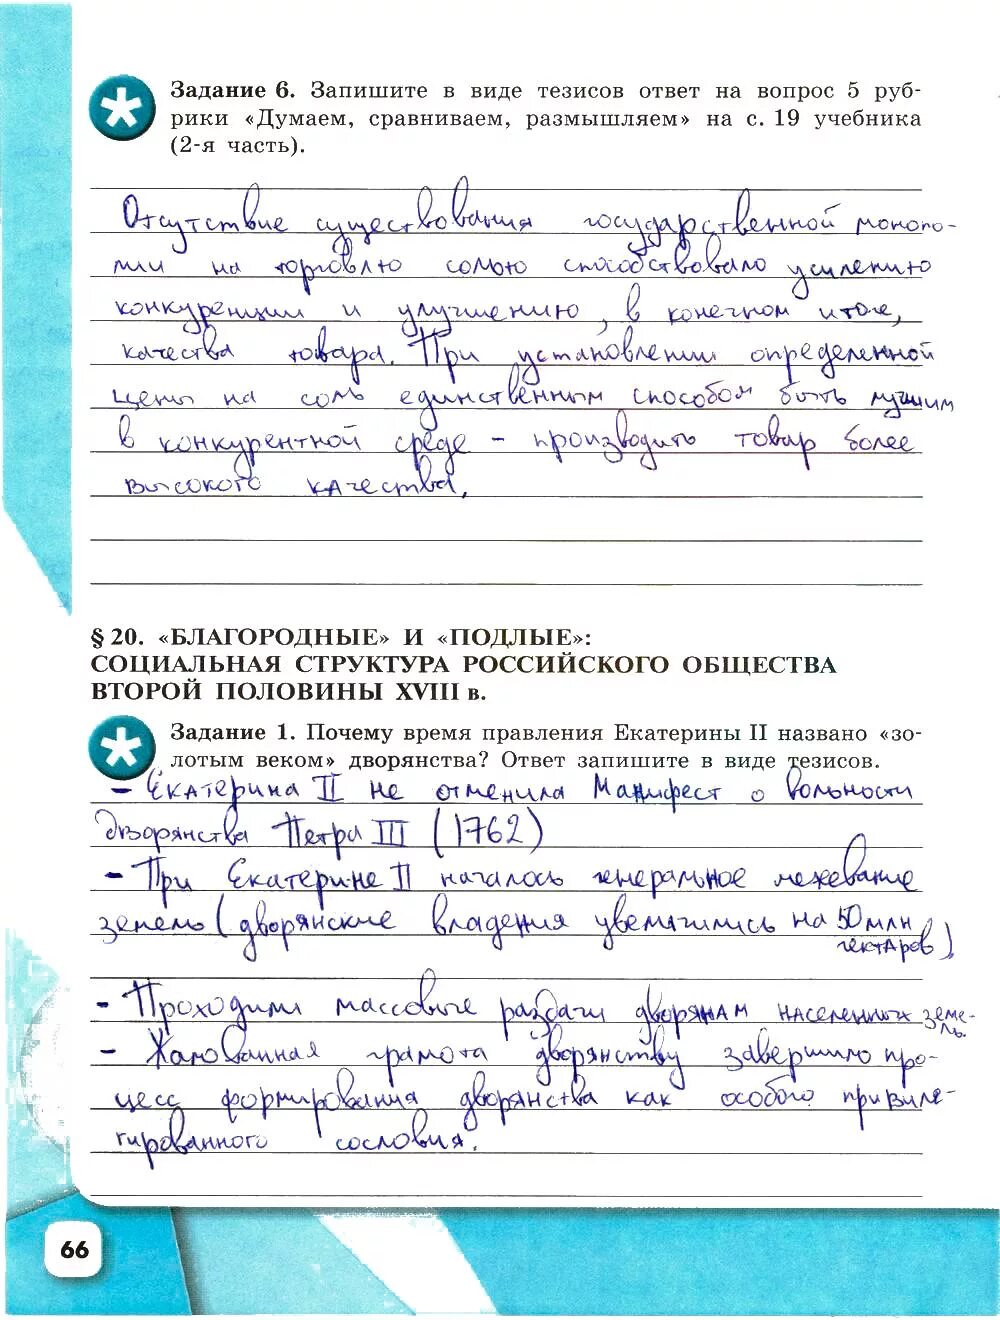 Задание 6. Запишите в виде тезисов ответ на вопрос 5 руб-
рики «Думаем, сравниваем, размышляем» на с. 19 учебника
(2-я часть).
Отсутствие существования государственной монопо-
лии на торговлю солью способствовало усилению
конкуренции и улучшению, в конечном итоге,
качества товара. При установлении определенной
цены на соль единственным способом быть лучшим
в конкурентной среде - производить товар более
высокого качества.
§ 20. «БЛАГОРОДНЫЕ» И «ПОДЛЫЕ»:
СОЦИАЛЬНАЯ СТРУКТУРА РОССИЙСКОГО ОБЩЕСТВА
ВТОРОЙ ПОЛОВИНЫ XVIII в.
Задание 1. Почему время правления Екатерины II названо «зо-
лотым веком» дворянства? Ответ запишите в виде тезисов.
- Екатерина II не отменила Манифест о вольности
дворянства Петра III (1762)
- При Екатерине II началось генеральное межевание
земель (дворянские владения увеличились на 50 млн
гектаров)
- Проходили массовые раздачи дворянам населенных земе-
ль.
- Жалованная грамота дворянству завершило про-
цесс формирования дворянства как особого привиле-
гированного сословия.
66